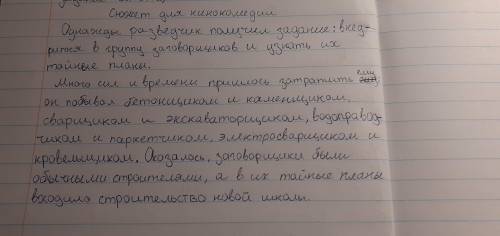 Сюжет для кинокомедии
Однажды разведчик получил задание: внед-
рится в группу заговорщиков и узнать их
тайные планы.
Много сил и времени пришлось затратить ему
он побывал бетонщиком и каменщиком,
сварщиком и экскаваторщиком, водопровод-
чиком и паркетчиком, электросварщиком и
кровельщиком. Оказалось, заговорщики были
обычными строителями, а в их тайные планы
входила строительство новой школы.